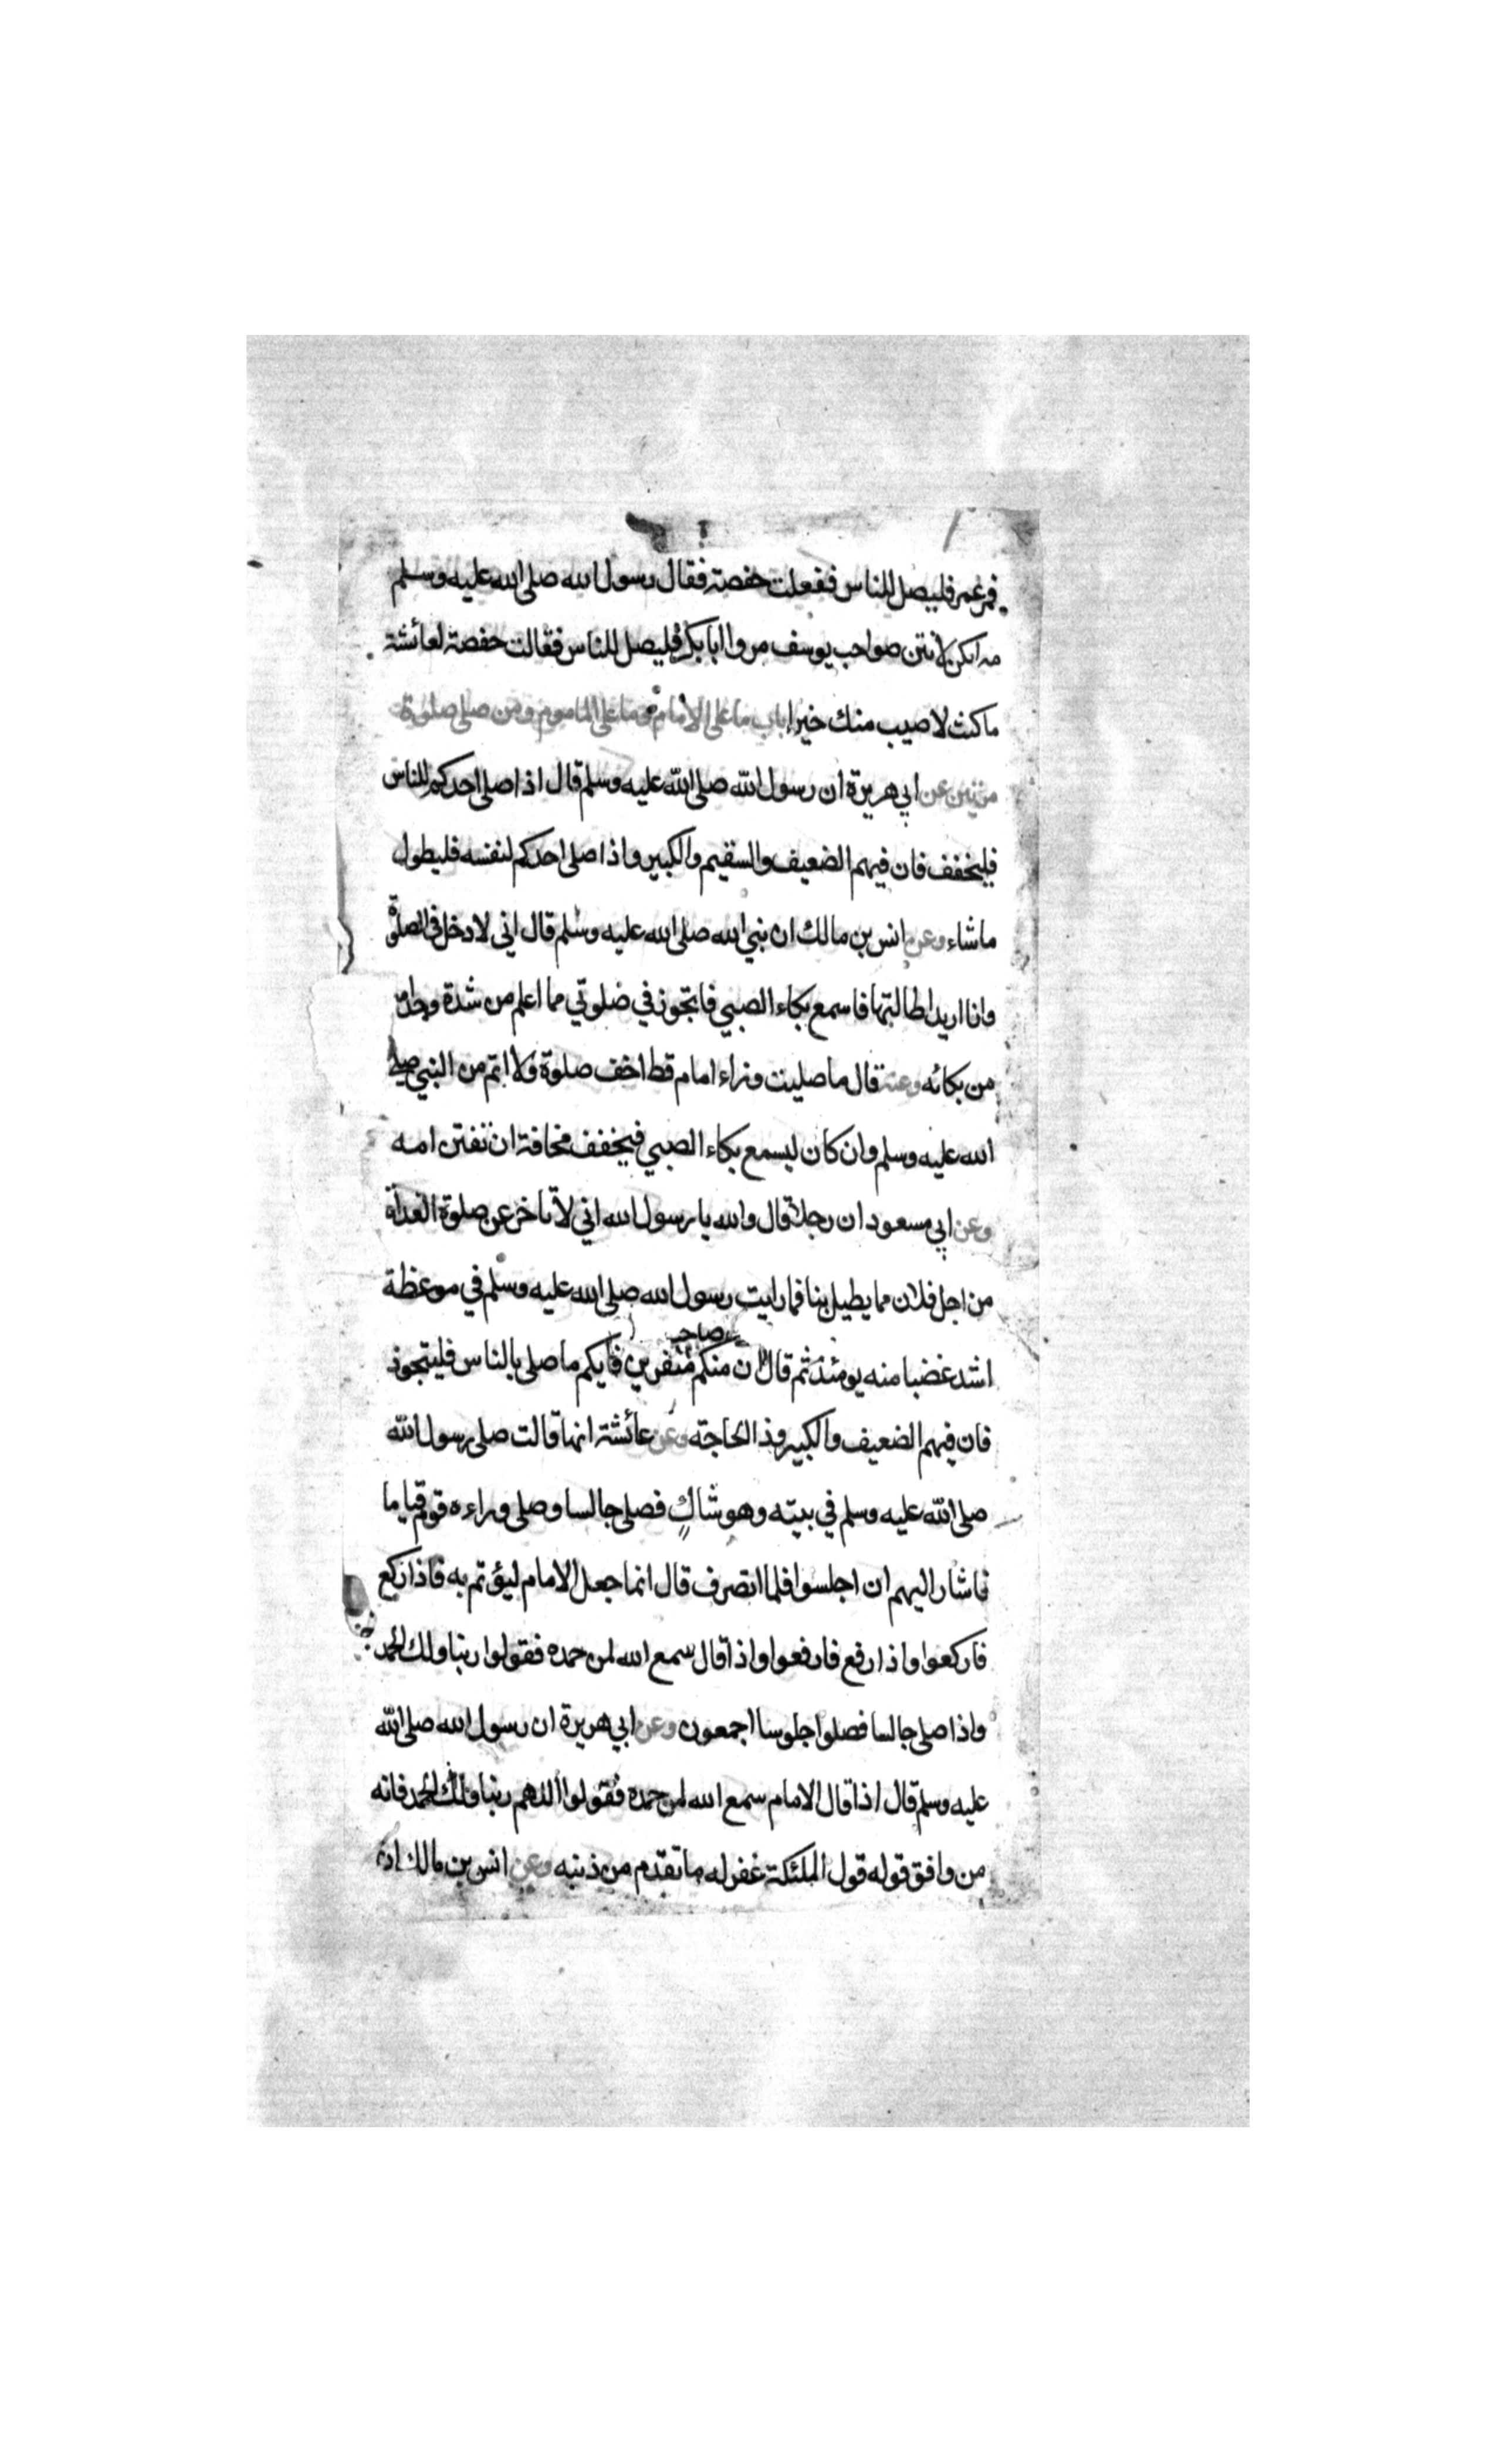 فمر عمر فليصل للناس ففعلت حفصة فقال رسول الله صلى الله عليه وسلم
مه انكن لانتن صواحب يوسف مروا ابا بكر فليصل للناس فقالت حفصة لعائشة
ما كنت لاصيب منك خيرا باب ما على الامام وما على الماموم ومن صلى صلوة
مرتين عن ابي هريرة ان رسول الله صلى الله عليه وسلم قال اذا صلى احدكم للناس
فليخفف فان فيهم الضعيف والسقيم والكبير واذا صلى احدكم لنفسه فليطول
ما شاء وعن انس بن مالك ان نبي الله صلى الله عليه وسلم قال اني لادخل في الصلوة
وانا اريد اطالتها فاسمع بكاء الصبي فاتجوز في صلوتي مما اعلم من شدة وجد امه
من بكائه وعنه قال ما صليت وراء امام قط اخف صلوة ولا اتم من النبي صلى
الله عليه وسلم وان كان ليسمع بكاء الصبي فيخفف مخافة ان تفتتن امه
وعن ابي مسعود ان رجلا قال والله يا رسول الله اني لاتاخر عن صلوة الغداة
من اجل فلان مما يطيل بنا فما رايت رسول الله صلى الله عليه وسلم في موعظة
اشد غضبا منه يومئذ ثم قال ان منكم منفرين فايكم ما صلى بالناس فليتجوز
فان فيهم الضعيف والكبير وذا الحاجة وعن عائشة انها قالت صلى رسول الله
صلى الله عليه وسلم في بيته وهو شاك فصلى جالسا وصلى وراءه قوم قياما
فاشار اليهم ان اجلسوا فلما انصرف قال انما جعل الامام ليؤتم به فاذا ركع
فاركعوا واذا رفع فارفعوا واذا قال سمع الله لمن حمده فقولوا ربنا ولك الحمد
واذا صلى جالسا فصلوا جلوسا اجمعون وعن ابي هريرة ان رسول الله صلى الله
عليه وسلم قال اذا قال الامام سمع الله لمن حمده فقولوا اللهم ربنا ولك الحمد فانه
من وافق قوله قول الملئكة غفر له ما تقدم من ذنبه وعن انس بن مالك ان